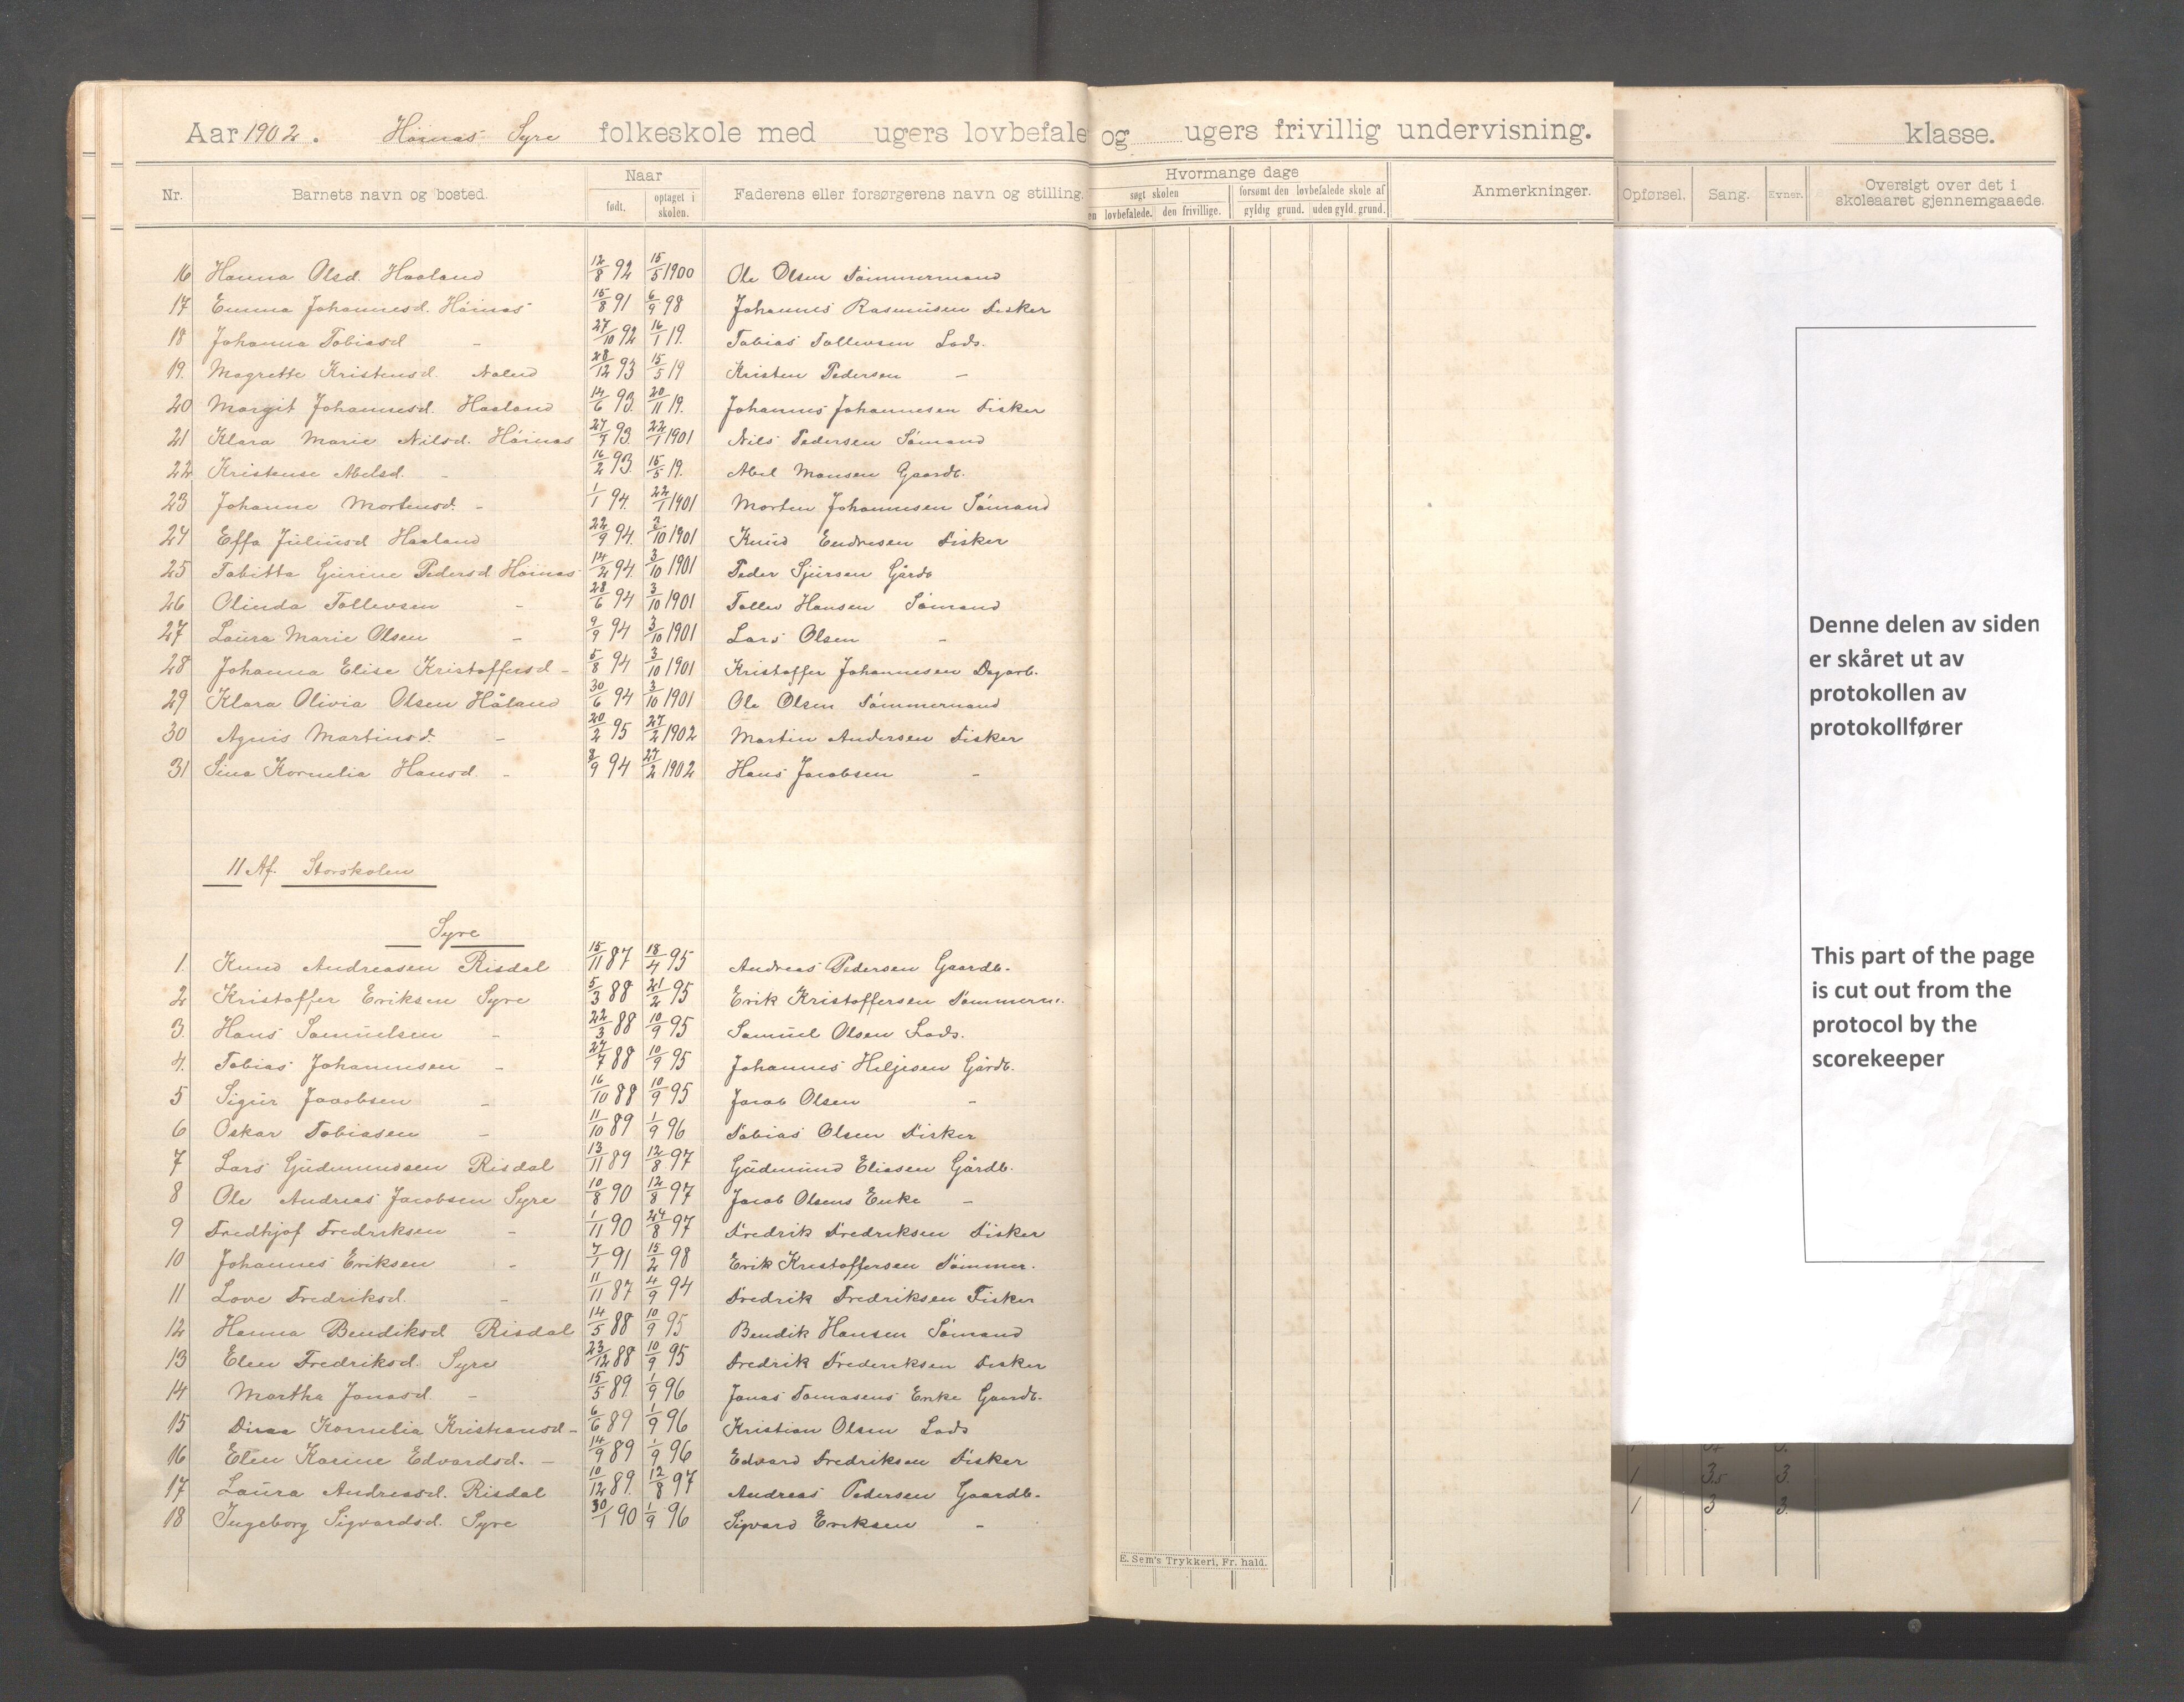 Aar 1902. Høinæs Syre folkeskole med ugers lovbefale og ugers frivillig undervisning. klasse.
Nr. Barnets navn og bosted. Naar født. optaget i skolen. Faderens eller forsørgerens navn og stilling. Hvormange dage søgt skolen en lovbefalede. den frivillige. forsømt den lovbefalede skole af gyldig grund. uden gyld. grund. Anmerkninger. Opførsel. Sang. Evner. Oversigt over det i skoleaaret gjennemgaaede.
16 Hanna Olsd. Haaland 12/8 92 15/5 1900 Ole Olsen Tømmermand
17 Emma Johannesd. Høinæs 15/8 91 6/9 98 Johannes Rasmusen Fisker
18 Johanna Tobiasd - 27/10 92 16/1 19. Tobias Tollevsen Lods.
19. Magrette Kristensd. 28/12 93 15/5 19 Kristen Pedersen -
20 Margit Johannesd. Haaland 14/6 93. 20/11 19. Johannes Johannesen Fisker
21 Klara Marie Nilsd. Høinæs 27/7 93. 22/1 1901 Nils Pedersen Sømand
22 Kristense Abelsd. - 16/2 93. 15/5 19. Abel Monsen Gaardb.
23 Johanne Mortensd. - 1/1 94. 22/1 1901 Morten Johannesen Sømand
24 Effa Juliusd Haaland 22/9 94. 3/10 1901 Knud Endresen Fisker
25 Tabitta Gurine Pedersd Høinæs 14/2 94. 3/10 1901 Peder Sjursen Gårdb
26 Olinda Tollevsen - 28/6 94 3/10 1901 Tollev Hansen Sømand
27 Laura Marie Olsen - 9/9 94 3/10 1901 Lars Olsen -
28 Johanna Elise Kristoffersd - 5/8 94 3/10 1901 Kristoffer Johannesen Dagarb.
29 Klara Olivia Olsen Håland 30/6 94 3/10 1901 Ole Olsen Tømmermand
30 Agnis Martinsd. - 20/2 95 27/2 1902 Martin Andersen Fisker
31 Sina Kornelia Hansd. - 8/9 94 27/2 1902 Hans Jacobsen -
11 Af. Storskolen
Syre
1. Knud Andreasen Risdal 15/11 87 18/4 95 Andreas Pedersen Gaardb.
2 Kristoffer Eriksen Syre 5/3 88 21/2 95 Erik Kristoffersen Tømmerm.
3. Hans Samuelsen - 22/3 88 10/9 95 Samuel Olsen Lods.
4. Tobias Johannesen - 27/7 88 10/9 95 Johannes Heljesen Gårdb.
5 Sigur Jacobsen - 16/10 88 10/9 95 Jacob Olsen -
6 Oskar Tobiasen - 11/10 89 1/9 96 Tobias Olsen Fisker
7 Lars Gudmundsen Risdal 13/11 89 12/8 97 Gudmund Eliasen Gårdb.
8 Ole Andreas Jacobsen Syre 10/8 90 12/8 97 Jacob Olsens Enke -
9 Fredhjof Fredriksen - 1/11 90 24/8 97 Fredrik Fredriksen Fisker
10 Johannes Eriksen - 7/1 91 15/2 98 Erik Kristoffersen Tømmer.
11 Love Fredriksd. - 11/11 87 4/9 94 Fredrik Fredriksen Fisker
12 Hanna Bendiksd Risdal 14/5 88 10/9 95 Bendik Hansen Sømand
13 Elen Fredriksd. Syre 23/12 88 10/9 95 Fredrik Frederiksen Fisker
14 Martha Jonasd. - 15/5 89. 1/9 96 Jonas Tomasens Enke Gaardb.
15 Dina Kornelia Kristiansd - 6/6 89 1/9 96 Kristian Olsen Lods
16 Elen Karine Edvardsd. - 14/9 89 1/9 96 Edvard Fredriksen Fisker
17 Laura Andreasd. Risdal 10/12 89. 12/8 97 Andreas Pedersen Gaardb.
18 Ingeborg Sigvardsd. Syre 30/1 90 1/9 96 Sigvard Eriksen -
E. Sem's Trykkeri, Fr. hald.
Denne delen av siden
er skåret ut av
protokollen av
protokollfører
This part of the page
is cut out from the
protocol by the
scorekeeper
1 3.5 3.
1 3 3.